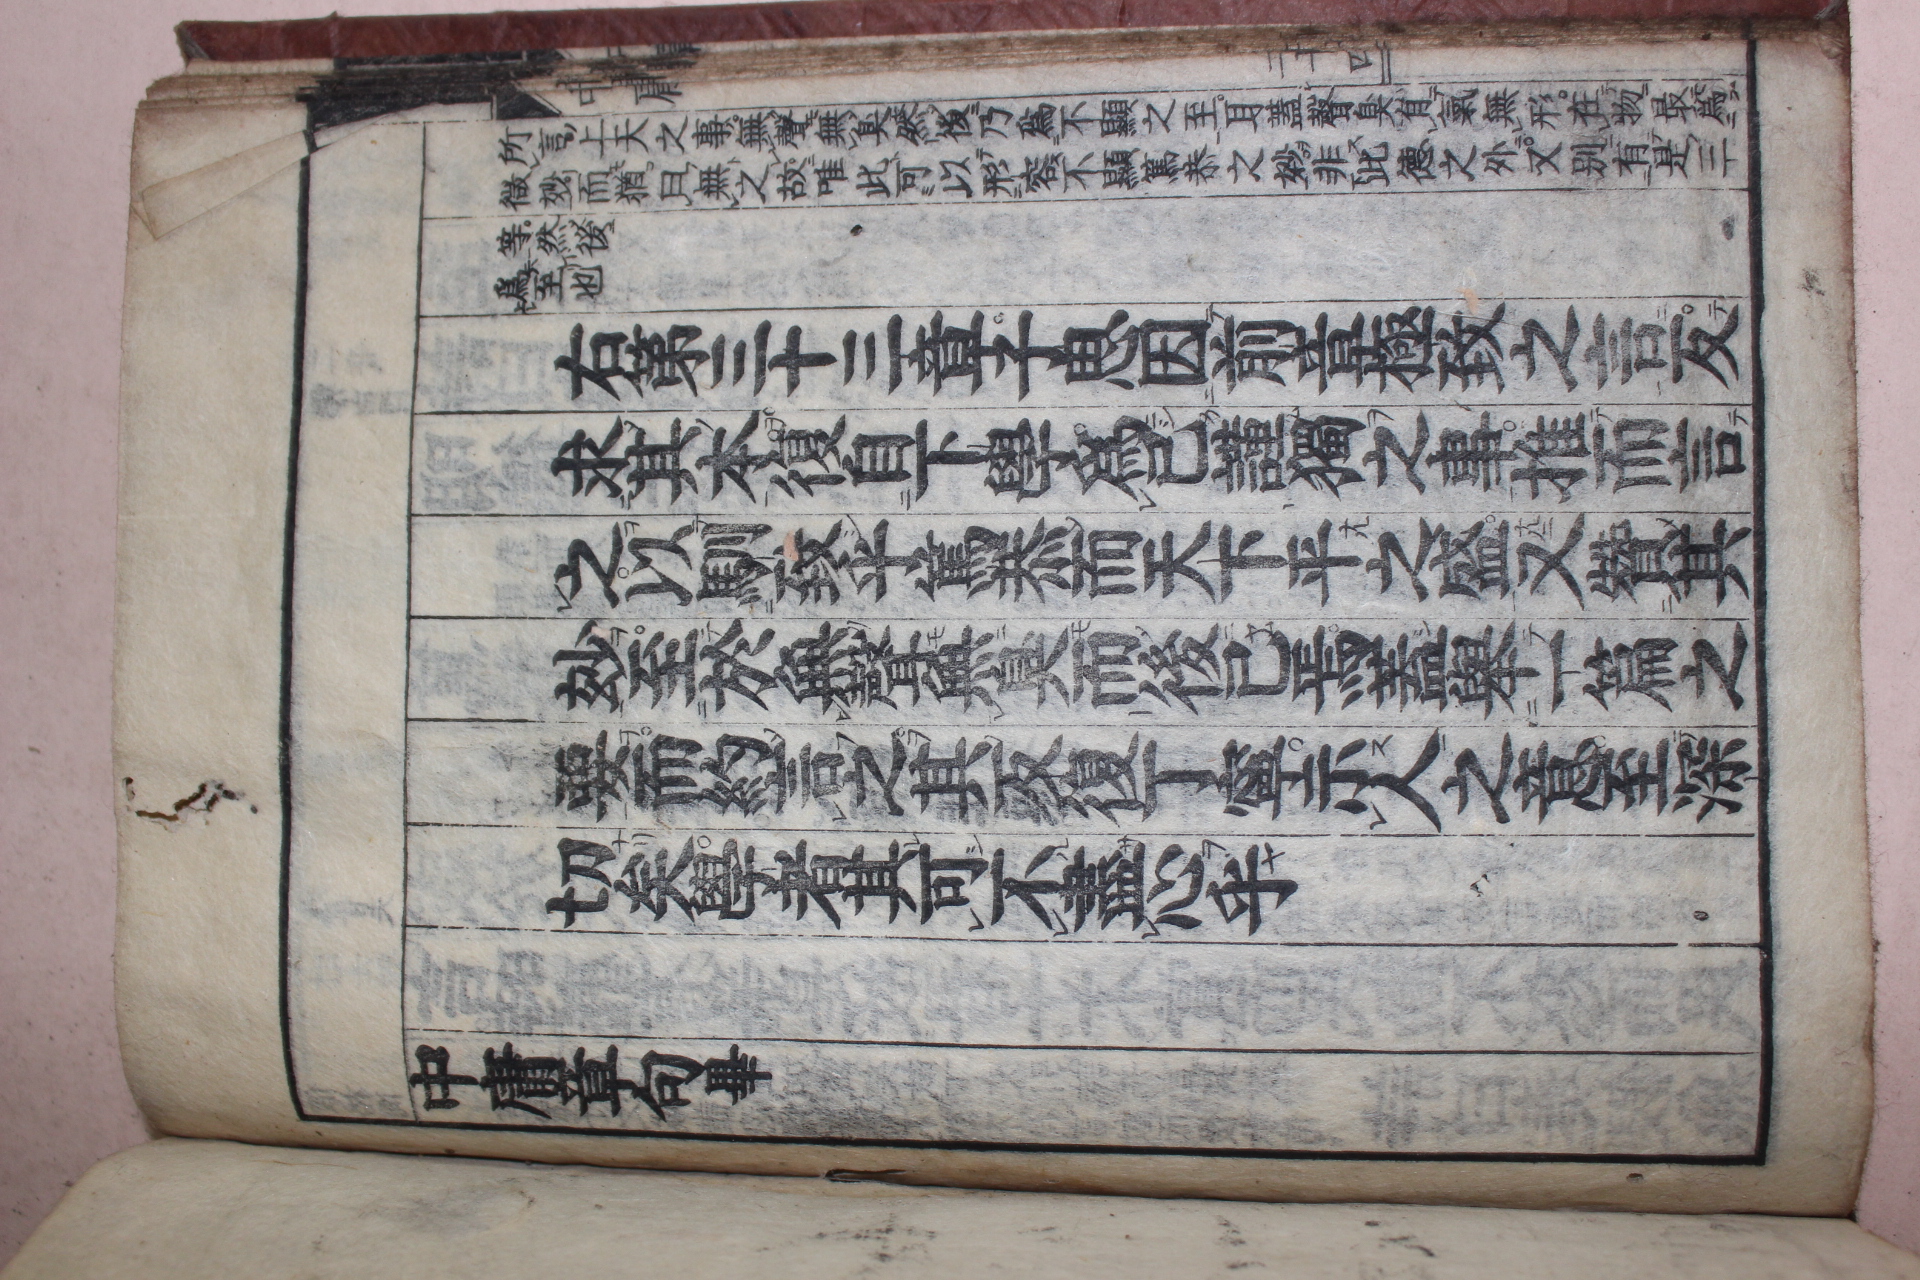 中庸
所言上天之事無聲無臭然後乃爲不顯之至耳蓋聲臭有氣無形在物最爲
微妙而猶曰無之故唯此可以形容不顯篤恭之妙非此德之外又別有是三
等然後
爲至也
右第三十三章子思因前章極致之言反
求其本復自下學爲己謹獨之事推而言
之以馴致乎篤恭而天下平之盛又贊其
妙至於無聲無臭而後已焉蓋舉一篇之
要而約言之其反復丁寧示人之意至深
切矣學者其可不盡心乎
中庸章句畢